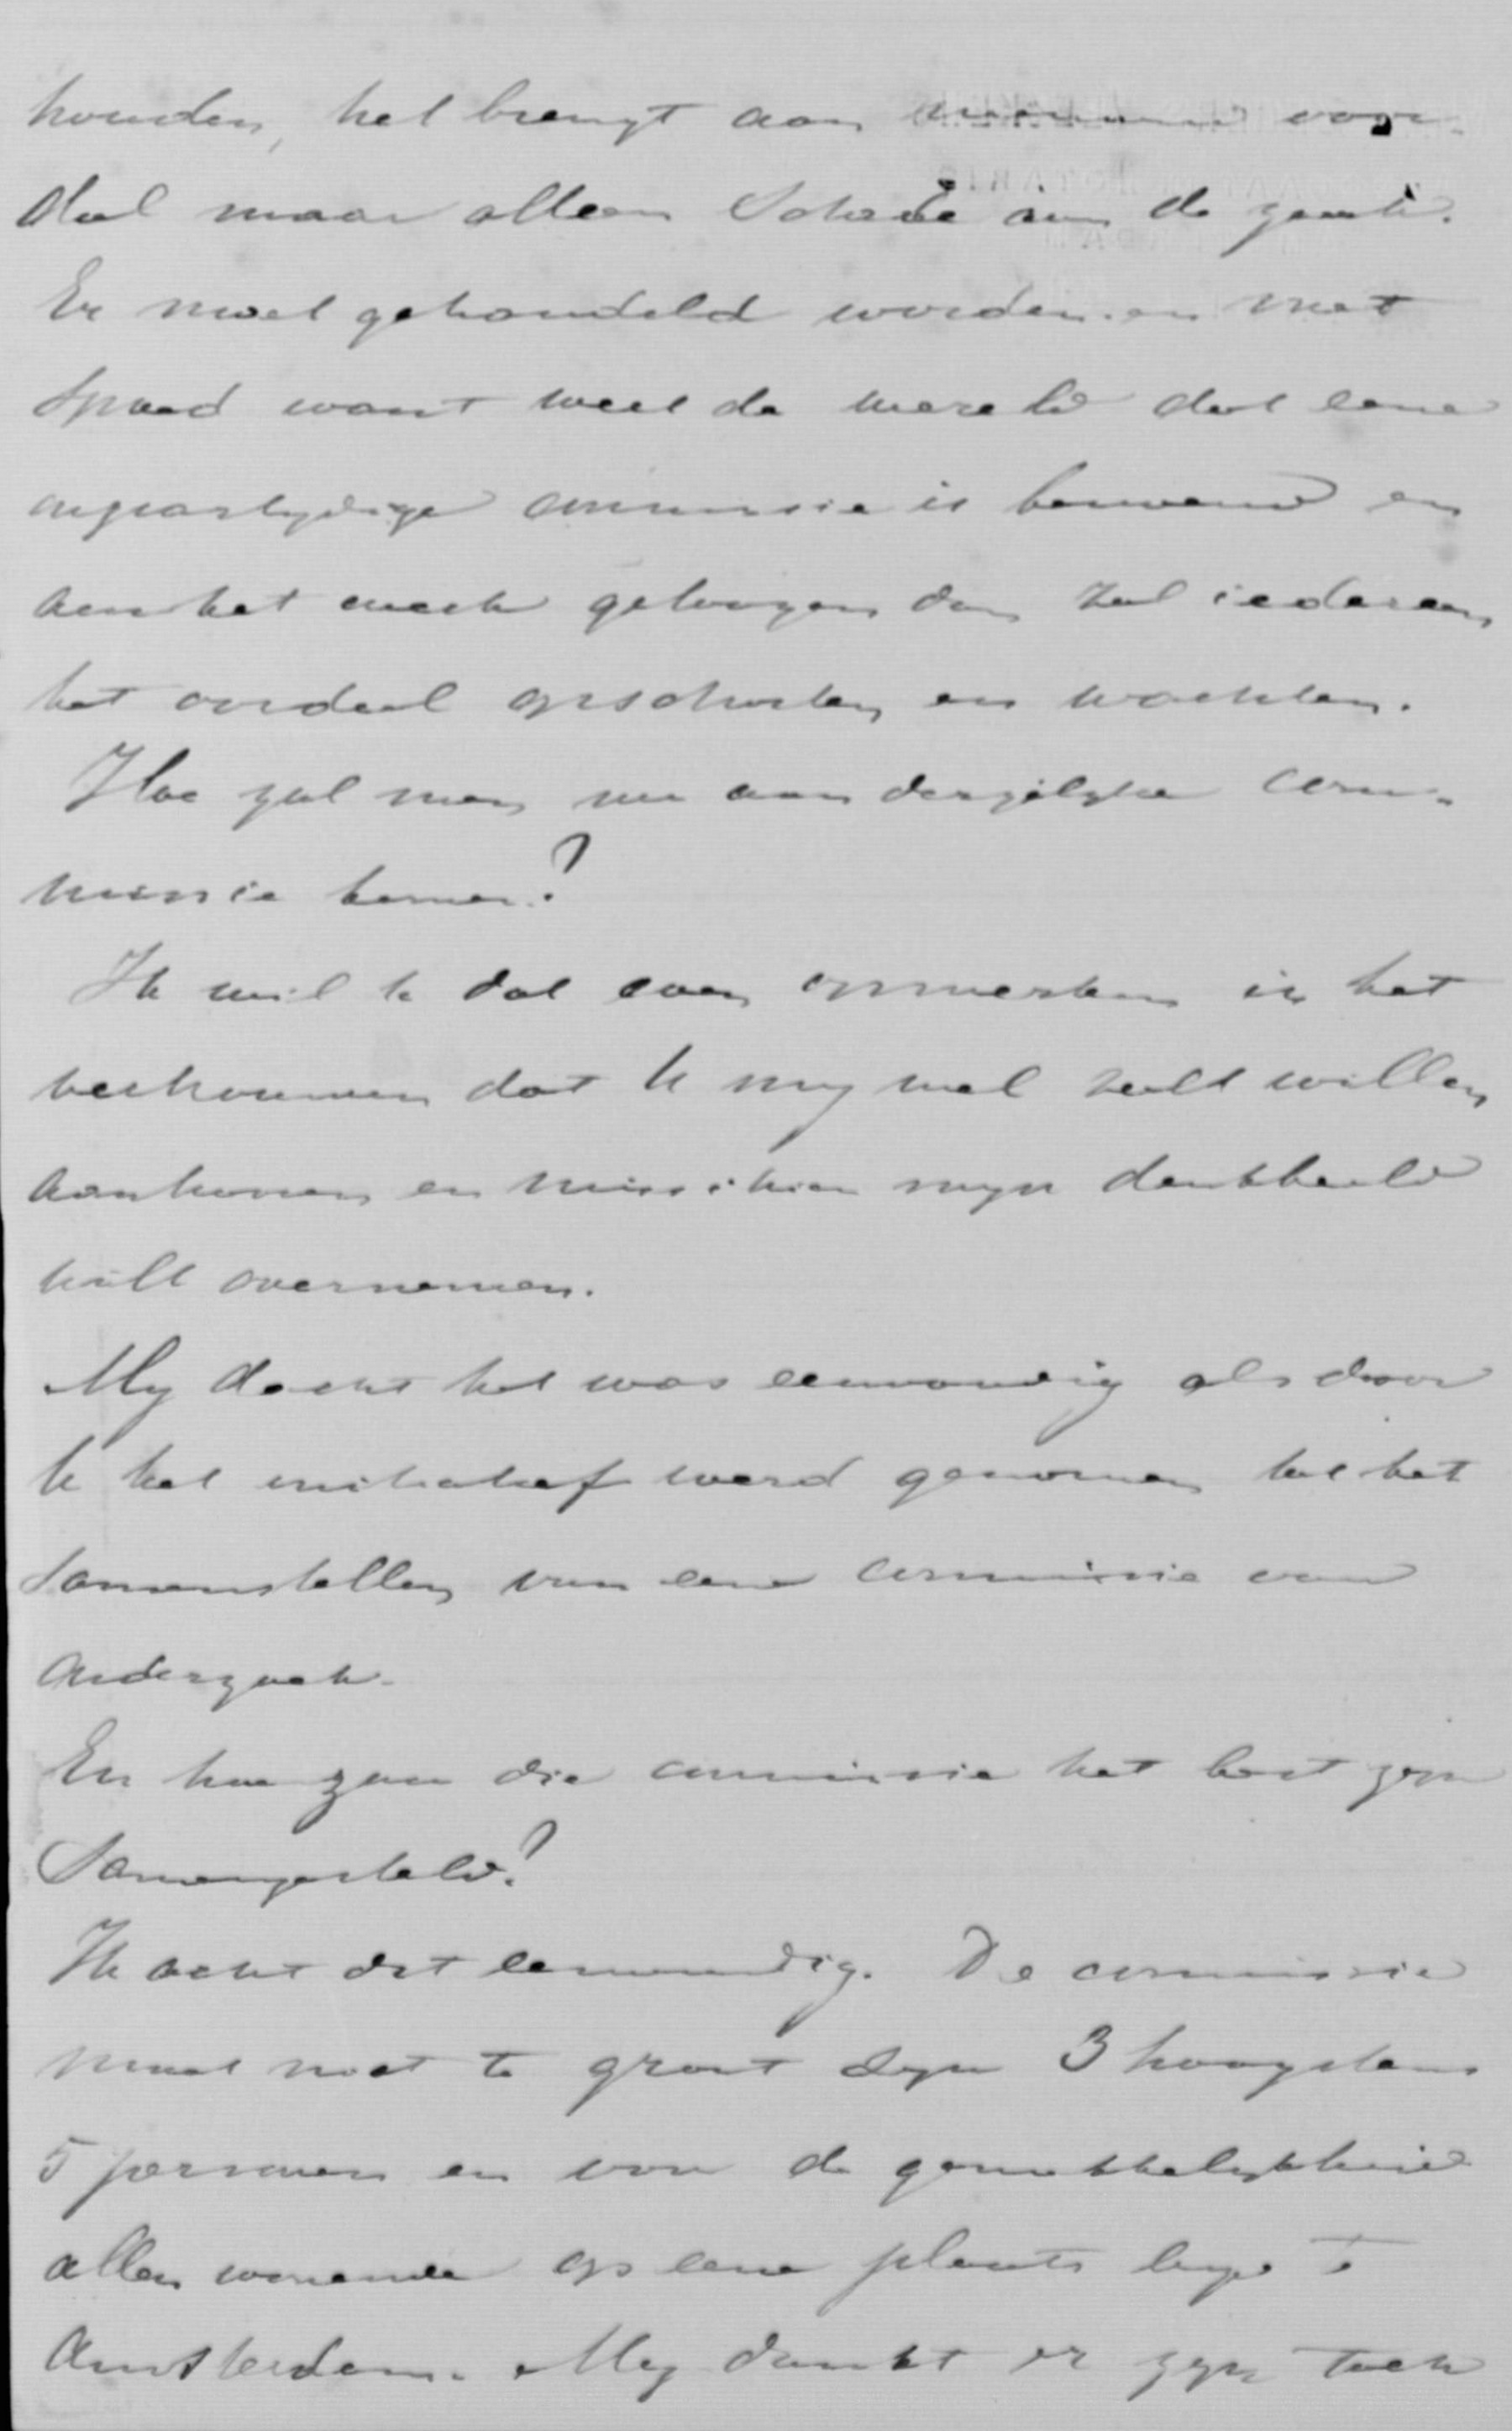 houden, het brengt aan niemand voor-
deel maar alleen Schade aan de zaak.
Er moet gehandeld worden en met
Spoed want weet de wereld dat eene
onpartydige commissie is benoemd en
aan het werk getogen dan zal iedereen
het oordeel opschorten en wachten.
Hoe zal men nu aan dergelyke com-
missie komen?
Ik wil U dat even opmerken in het
vertrouwen dat U my wel zult willen
aanhooren en misschien myn denkbeeld
wilt overnemen.
My dacht het was eenvoudig als door
U het initiatief werd genomen tot het
Samenstellen van eene commissie van
onderzoek.
En hoe zou die commissie het best zyn
Samengesteld?
Ik acht dat eenvoudig. De commissie
moet niet te groot zyn 3 hoogstens
5 personen en voor de gemakkelykheid
allen wonende op eene plaats b.v. te
Amsterdam. My dunkt er zyn toch